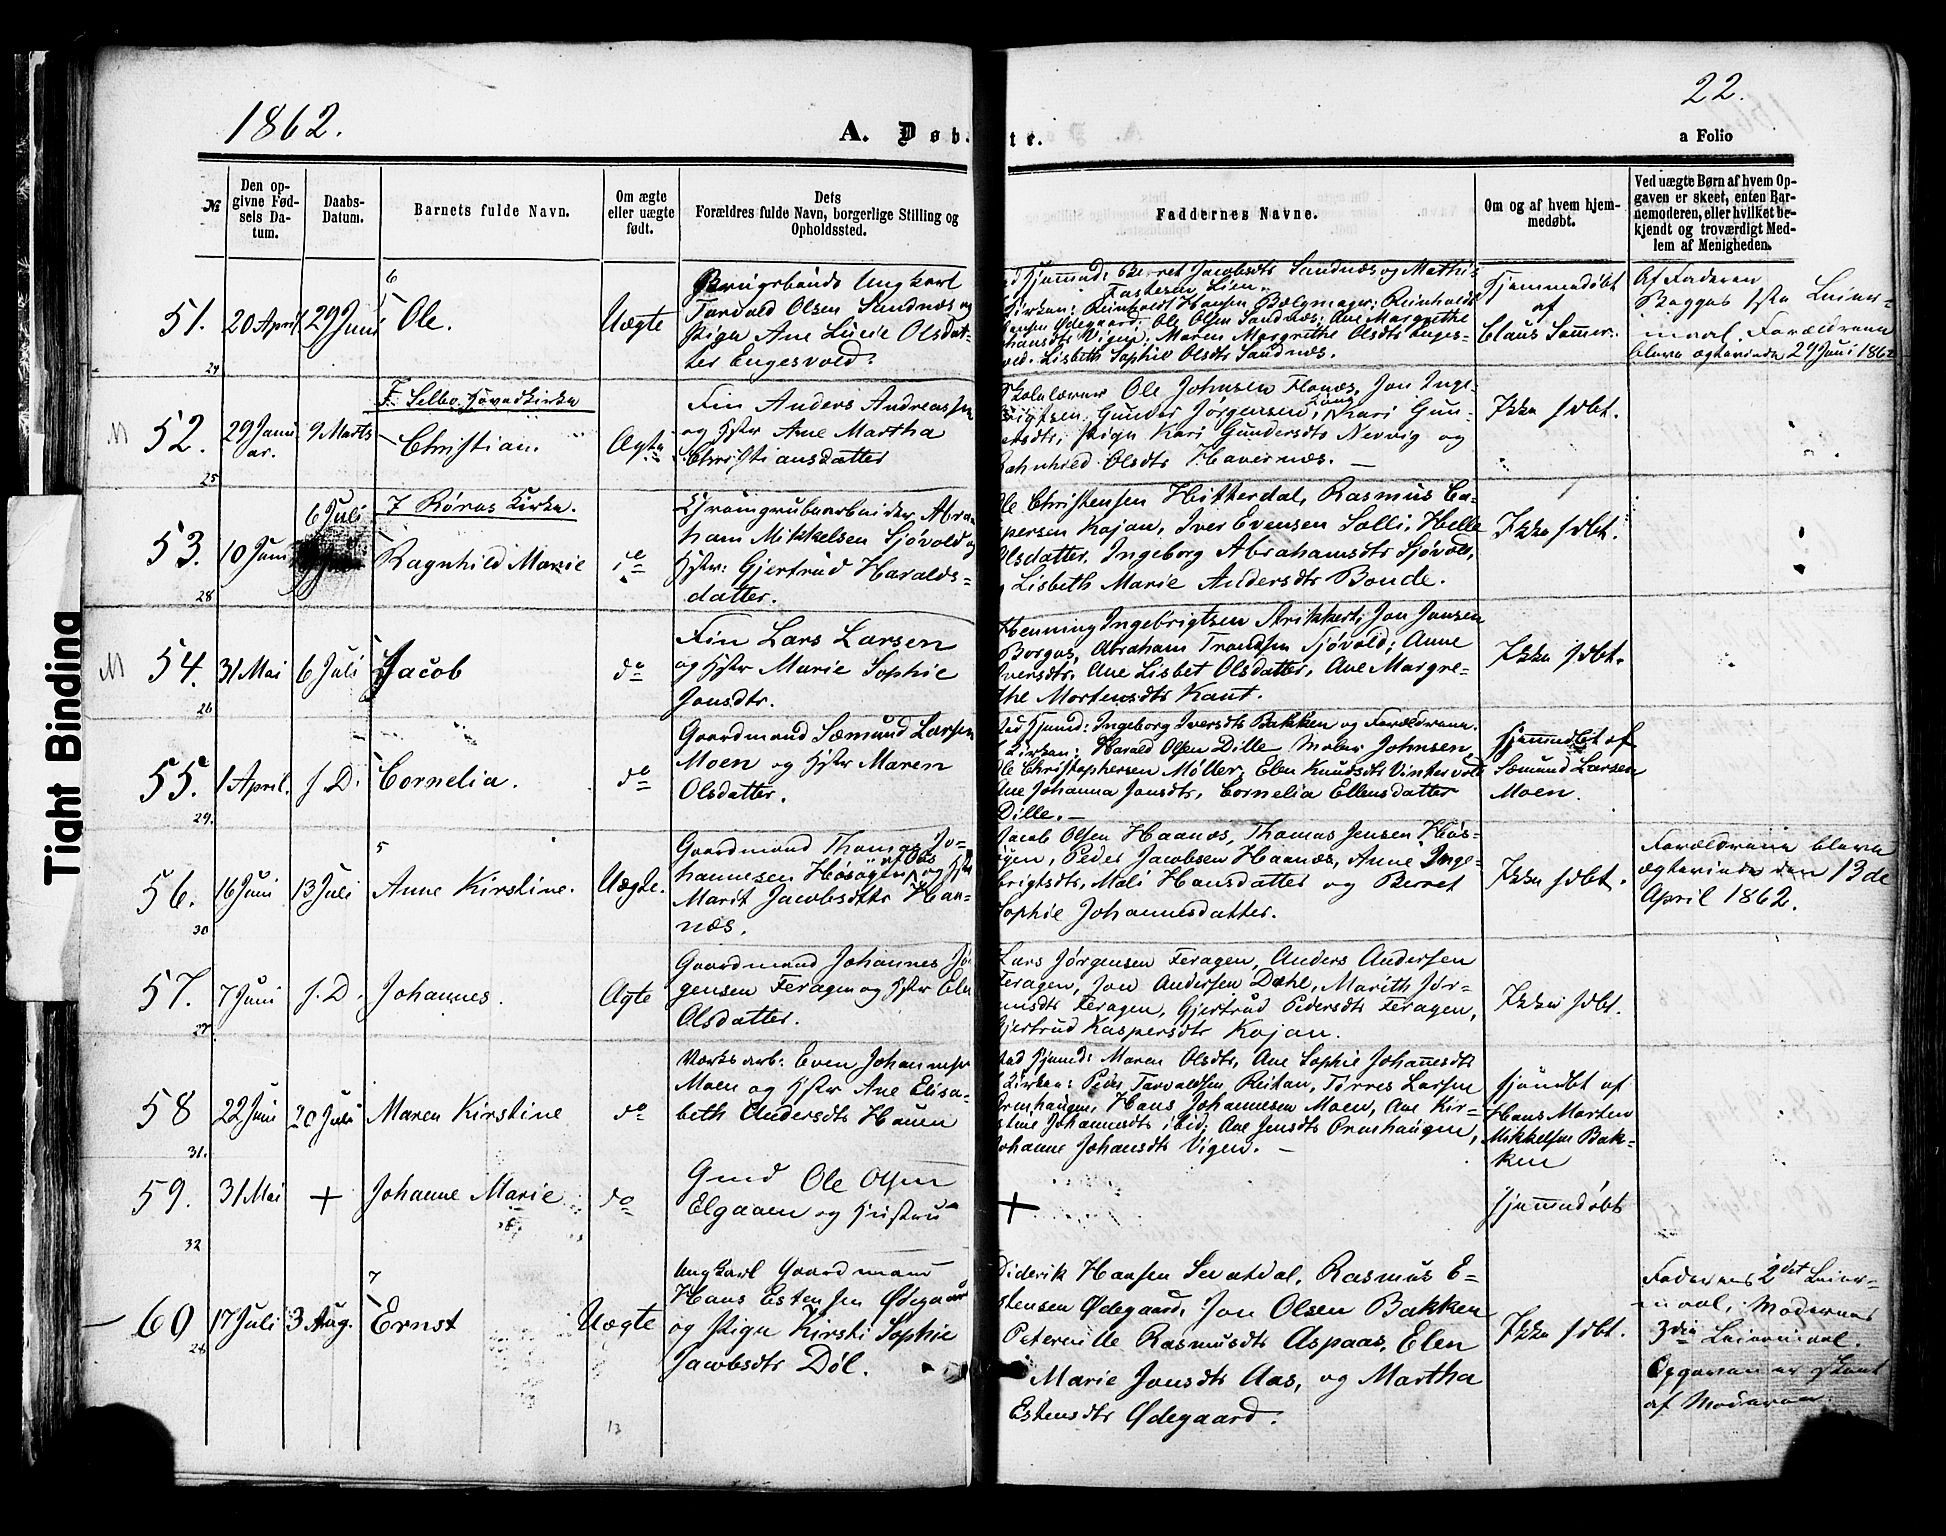 1862.
A. Døb-
te.
22.
a Folio
№
Den op-
givne Fød-
sels Da-
tum.
Daabs-
Datum.
Barnets fulde Navn.
Om ægte
eller uægte
født.
Dets
Forældres fulde Navn, borgerlige Stilling og
Opholdssted.
Faddernes Navne.
Om og af hvem hjem-
medøbt.
Ved uægte Børn af hvem Op-
gaven er skeet, enten Bar-
nemoderen, eller hvilket be-
kjendt og troværdigt Med-
lem af Menigheden.
51.
24
20 April
29 Juni
6
Ole.
Uægte
Ungkarl
Torvald Olsen Sandnæs og
Pige Ane Lucie Olsdat-
ter Engesvold.
Hjemmed: Berret Jacobsdtr Sandnæs og Mathi-
Fastesen Lien.
Kirken: Reinholdt Hansen Bælgmager; Reinholdt
Hansen Ødegaard; Ole Olsen Sandnæs; Ane Margrethe
Vigen; Maren Margrethe Olsdtr Enges-
vold. Lisbeth Sophie Olsdtr Sandnæs.
Hjemmedøbt
af
Claus Sommer.
Af Faderen
Begges 1ste Leier-
maal. Forældrene
bleve ægteviede 29 Juni 1862
M
52.
25
29 Janu
ar.
9 Marts
F. Selbo Hovedkirke
Christian.
Ægte
Fin Anders Andreassen
og Hstr Ane Martha
Christiansdatter
Skolelærer Ole Johnsen Flonæs, Jon Inge-
brigtsen, Gunder Jørgensen, Kone Kari Gun-
dersdtr; Pige Kari Gundersdtr Nervig og
Rahnhild Olsdtr Havernæs. —
Ikke hdbt.
53.
28
10 Juni
6 Juli
7 Røros Kirke.
Ragnhild Marie
do
Chromgrubearbeider Abra-
ham Mikkelsen Sjøvold og
Hstr: Gjertrud Haralds-
datter.
Ole Christensen Hitterdal, Rasmus Ca-
spersen Kojan, Iver Evensen Solli, Helle
Olsdatter, Ingeborg Abrahamsdtr Sjøvold,
og Lisbeth Marie Andersdtr Bonde.
Ikke hdbt.
M
54.
26
31 Mai
6 Juli
Jacob
do
Fin Lars Larsen
og Hstr Marie Sophie
Jonsdtr.
Henning Ingebrigtsen Arikkert; Jon Jonsen
Borgos, Abraham Trondsen Sjøvold; Anne
Iversdtr, Ane Lisbet Olsdatter, Ane Margre-
the Mortensdtr Kant.
Ikke hdbt.
55.
29.
1 April.
s. D.
Cornelia.
do
Gaardmand Sæmund Larsen
Moen og Hstr Maren
Olsdatter.
Ved Hjemd: Ingeborg Iversdtr Bakken og Forældrene.
I Kirken: Harald Olsen Dille, Maler Johnsen,
Ole Christophersen Møller, Elen Knudsdtr Vintervold
Ane Johanna Jonsdtr, Cornelia Ellensdatter
Dille. —
Hjemmedbt af
Sæmund Larsen
Moen.
56.
30
16 Juni
13 Juli
5
Anne Kirstine.
Uægte.
Gaardmand Thomas Jo-
hannesen Høsøgen og Hstr
Marit Jacobsdtr Haa-
næs.
Jacob Olsen Haanæs, Thomas Jensen Høs-
øgen, Peder Jacobsen Haanæs, Anne Inge-
brigtsdtr, Mali Hansdatter og Beret
Sophie Johannesdatter.
Ikke hdbt.
Forældrene bleve
ægteviede den 13de
April 1862.
57.
27
7 Juni
s. D.
Johannes.
Ægte
Gaardmand Johannes Jør-
gensen Feragen og Hstr Elen
Olsdatter.
Lars Jørgensen Feragen, Anders Andersen
Feragen, Jon Andersen Dæhl, Marith Jør-
Feragen, Gjertrud Pedersdtr Feragen,
Gjertrud Kaspersdtr Kojan.
Ikke hdbt.
58
31.
22 Juni
20 Juli
Maren Kirstine
do
Værksarb: Even Johannesen
Moen og Hstr Ane Elisa-
beth Andersdtr Hauen
Ved Hjemd: Maren Olsdtr, Ane Sophie Johannesdtr
I Kirken: Peder Torvaldsen Reitan, Torres Larsen
Ormhaugen, Hans Johannesen Moen, Ane Kir-
stine Johannesdtr ibid; Ane Jensdtr Ormhaugen,
Johanne Johansdtr Vigen. —
Hjemdbt af
Hans Morten
Mikkelsen Bak-
ken
59.
32
31 Mai
+
Johanne Marie
do
Gmd Ole Olsen
Elgaaen og Hustru
+
Hjemmedøbt
60
28
17 Juli
3 Aug.
7
Ernst
Uægte
Ungkarl Gaardmand
Hans Estensen Ødegaard
og Pige Kirsti Sophie
Jacobsdtr Døl.
Diderik Hansen Sevatdal, Rasmus E-
stensen Ødegaard, Jon Olsen Bakken
Peternille Rasmusdtr Aspaas, Elen
Marie Jonsdtr Aas, og Martha
Estensdtr Ødegaard.
Ikke hdbt.
Faderens 2det Leier-
maal, Moderens
3die Leiermaal.
Opgaven er skeet
af Moderen.
13
Tight Binding